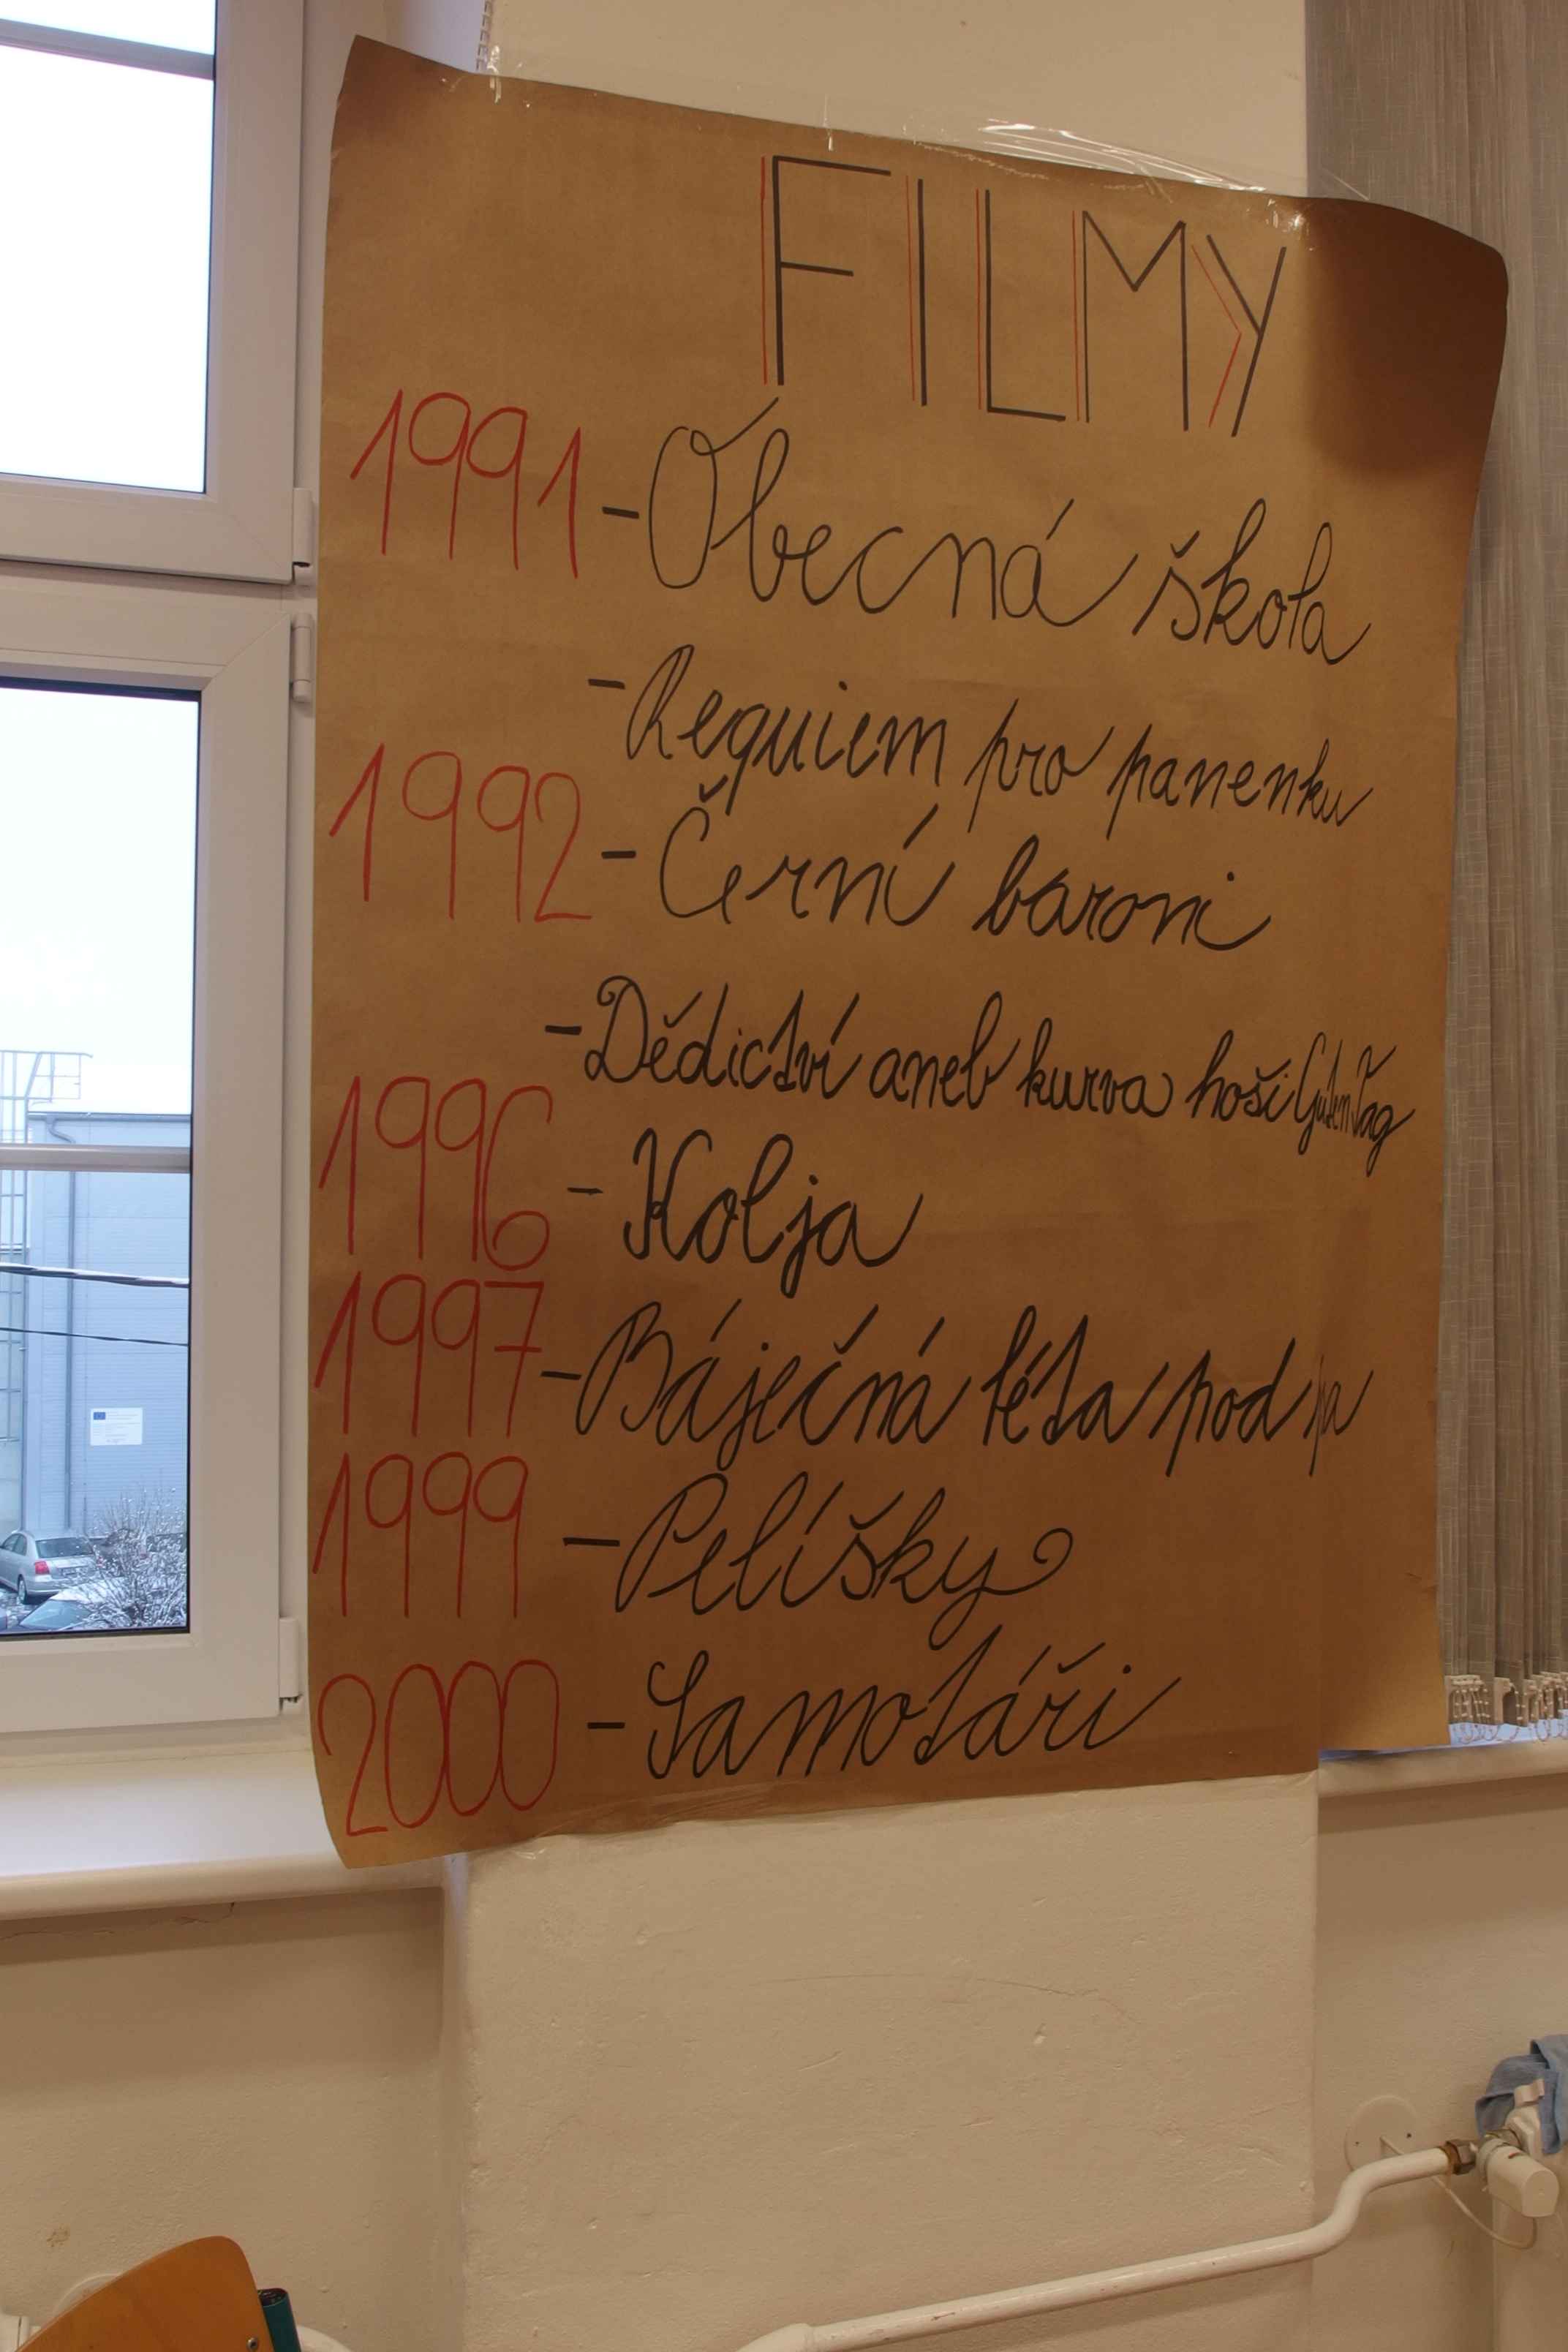 FILMY
1991 - Obecná škola
- Requiem pro panenku
1992 - Černí baroni
- Dědictví aneb kurva hoši Guten Tag
1996 - Kolja
1997 - Báječná léta pod pa
1999 - Pelíšky
2000 - Samotáři